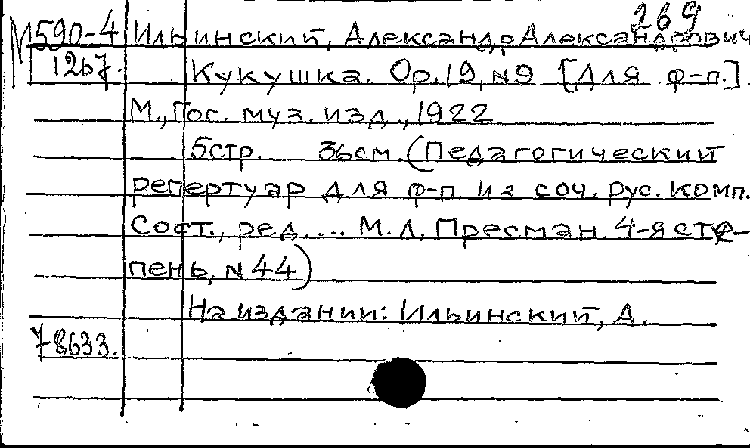 269
М590-4 Ильинский, Александр Александрович
1267. Кукушка. Ор.19, №9 [Для ф-п.]
М., Гос. муз. изд., 1922
5стр. 36см. (Педагогический
репертуар для ф-п из соч. рус. комп.
Сост., ред.... М.Л. Пресман 4-я сте-
пень, №44)
На издании: Ильинский, А.
78633.